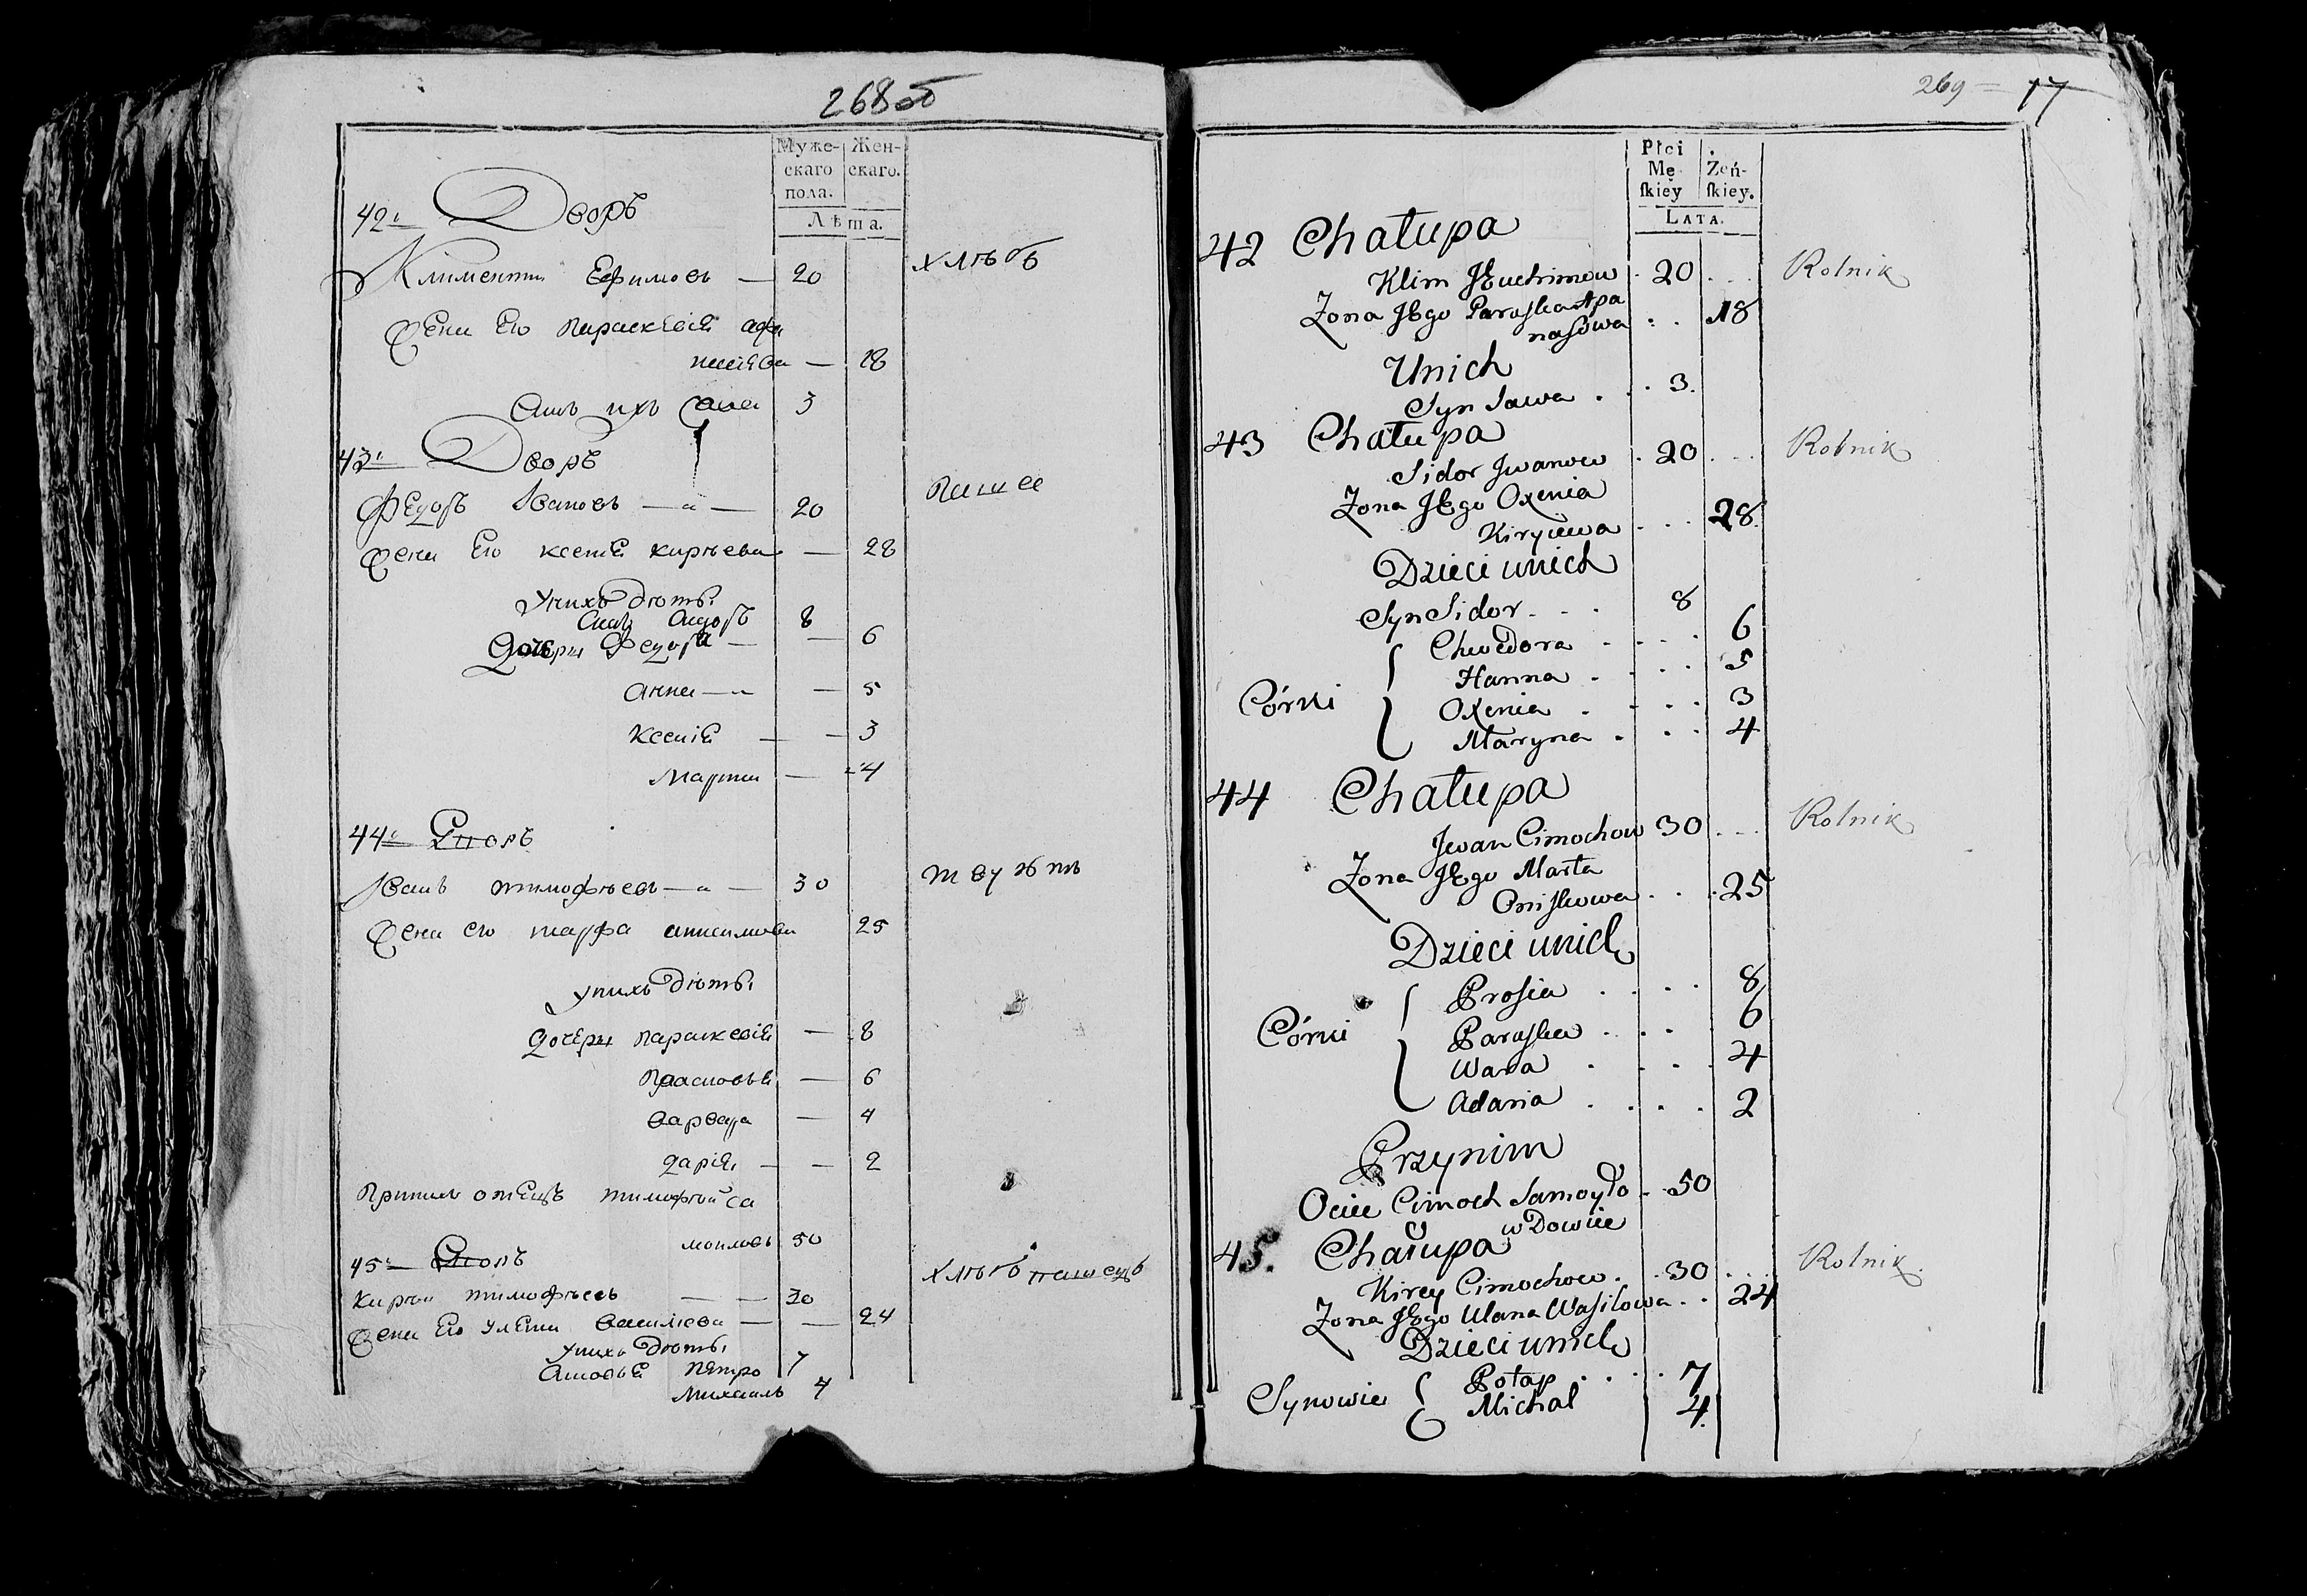 268об
Муже-
скаго
пола.
Жен-
скаго.
Лѣта.
42. Дворъ
Климентъ Ефимовъ — 20
хлѣбъ
Жена Его параскевiя афа
насiева — 18
Сынъ ихъ Сава 3
43. Дворъ
Федоръ Ивановъ — „ — 20
пашее
Жена Его ксенiя кирѣева — 28
Унихъ дѣтѣи
Сынъ Сидоръ 8
Дочери Федора — — 6
анна — „ — 5
Ксенiя — — 3
марина — 4
44. Дворъ
Иванъ тимофѣевъ — „ — 30
тѣужтъ
Жена его марфа анисимова 25
унихъ дѣтѣи
дочери параскевiя — 8
Прасковья — 6
варвара — 4
дарiя — — 2
Принихъ отецъ тимофѣй са
моиловъ 50
45. Дворъ
хлѣбъ пашецъ
Кирѣй тимофѣевъ — — 30
Жена Его улена василѣева — — 24
унихъ дѣтѣи
Сыновья Петро 7
Михаилъ 4
269 — 17
Płci
Mę-
ſkiey
Żeń-
ſkiey.
Lata.
42 Chałupa
Klim JEuchimow . 20 . . .
Rolnik
Żona JEgo Paraſka Apa
naſowa : . 18
Unich
Syn Sawa . . . 3.
43 Chałupa
Sidor Jwanow . 20 . . .
Rolnik
Żona JEgo Oxenia
Kiryiewa . . . 28.
Dzieci unich
Syn Sidor . . . 8
Chwedora . . . . 6
Hanna . . . . 5
Córki
Oxenia . . . . 3
Maryna . . . 4
44 Chałupa
Jwan Cimochow 30 . . .
Rolnik
Żona JEgo Marta
Oniſkowa . . . 25
Dzieci unich
Proſia . . . . 8
Córki
Paraſka . . . . 6
Wara . . . . 4
Adaria . . . . 2
Przynim
Ociec Cimoch Samoyło . . 50
wDowiec
45. Chałupa
Kirey Cimochow . . 30 . . .
Rolnik.
Żona JEgo Ulana Waſilowa . . 24
Dzieci unich
Synowie
Potap . . . . 7
Michał 4.